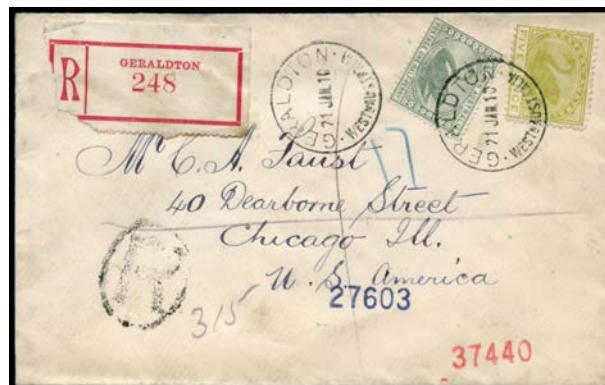 R
GERALDTON
248
GERALDTON · WESTN AUSTRALIA ·
21 JAN. 10
GERALDTON · WESTN AUSTRALIA ·
21 JAN. 10
FIVE
Mr C. A. Faust
40 Dearborne Street
Chicago Ill.
U. S. America
R
315
27603
37440